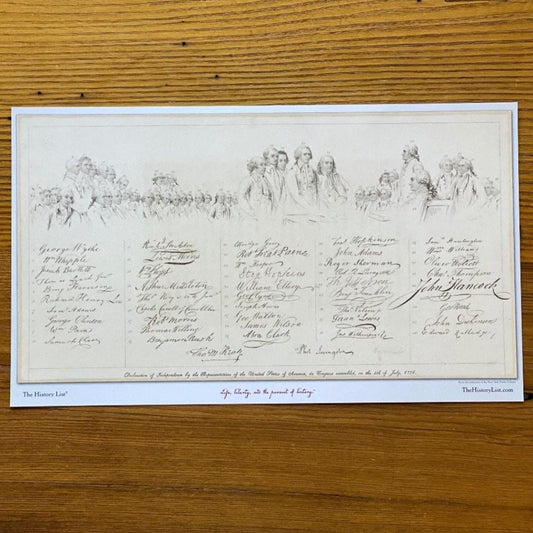 George Wythe
Wm Whipple
Josiah Bartlett
Benj Harrison
Richard Henry Lee
Saml Adams
George Clinton
Wm Paca
Samuel Chase
Lewis Morris
Arthur Middleton
Charles Carroll of Carrollton
Robt Morris
Thomas Willing
Benjamin Rush
Elbridge Gerry
Robt Treat Paine
Wm Hooper
Step Hopkins
William Ellery
Geo Clymer
Joseph Hewes
Geo Walton
James Wilson
Abra Clark
Fras Hopkinson
John Adams
Roger Sherman
Th Jefferson
Benj Franklin
Thos Nelson jr
Frans Lewis
Jno Witherspoon
Phil. Livingston
Sam Huntington
Wm Williams
Oliver Wolcott
Chas Thomson
John Hancock
Geo Read
John Dickinson
Edward Rutledge
Declaration of Independence by the Representatives of the United States of America, in Congress assembled, on the 4th of July, 1776.
The History List®
Life, liberty, and the pursuit of history.®
TheHistoryList.com